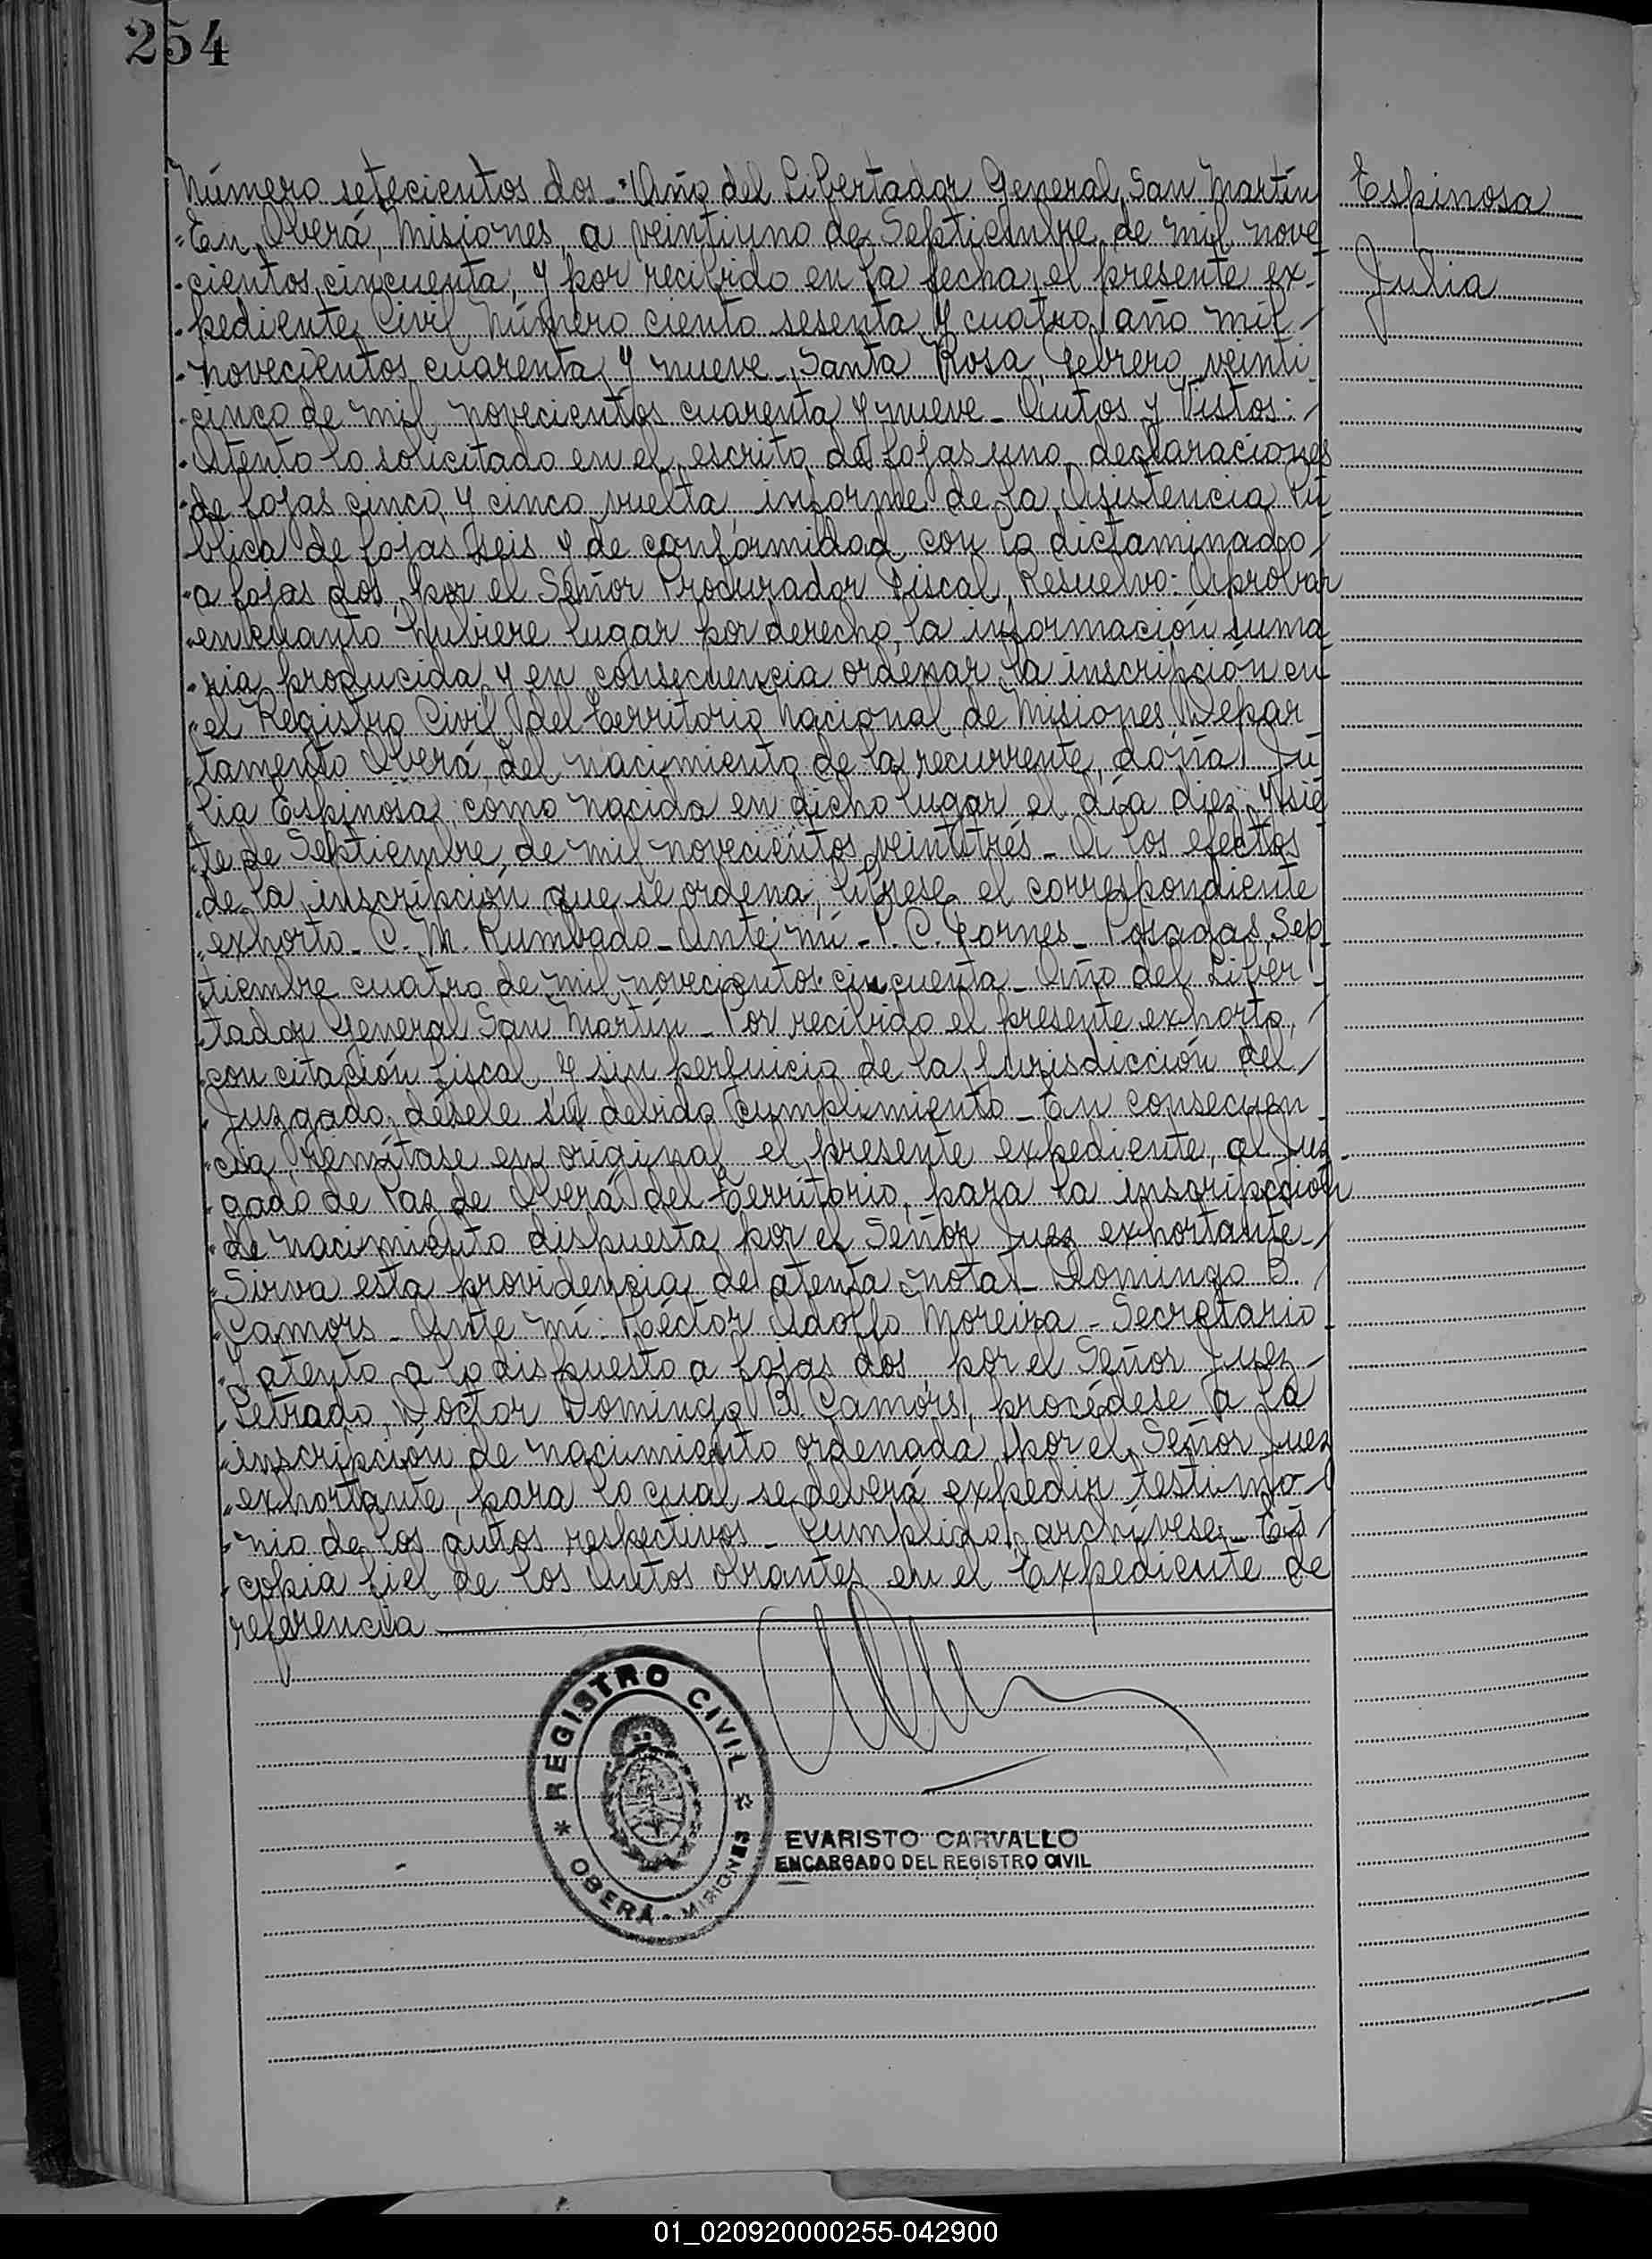 254
Número setecientos dos - "Año del Libertador General San Martín
Espinosa
"En Oberá, Misiones, a veintiuno de Septiembre de mil nove
cientos cincuenta, y por recibido en la fecha el presente ex-
Julia
pediente Civil Número ciento sesenta y cuatro, año mil
novecientos cuarenta y nueve - Santa Rosa, febrero veinti
cinco de mil novecientos cuarenta y nueve - Autos y Vistos:
Atento lo solicitado en el escrito de fojas uno, declaraciones
de fojas cinco y cinco vuelta, informe de la Asistencia Pú
blica de fojas seis y de conformidad con lo dictaminado
a fojas dos, por el Señor Procurador Fiscal, Resuelvo: Aprobar
en cuanto hubiere lugar por derecho, la información suma
ria producida y en consecuencia ordenar la inscripción en
el Registro Civil del Territorio Nacional de Misiones, Depar
tamento Oberá, del nacimiento de la recurrente, doña Ju
lia Espinosa, como nacida en dicho lugar el día diez y sie
te de Septiembre de mil novecientos veintitrés - A los efectos
de la inscripción que se ordena, líbrese el correspondiente
exhorto - C. M. Rumbado - Ante mí - P. C. Fornes - Posadas, Sep
tiembre cuatro de mil novecientos cincuenta - Año del Liber
tador General San Martín - Por recibido el presente exhorto,
con citación fiscal y sin perjuicio de la jurisdicción del
Juzgado, désele su debido cumplimiento - En consecuen
cia, remítase en original el presente expediente, al Juz
gado de Paz de Oberá del Territorio, para la inscripción
de nacimiento dispuesta por el Señor Juez exhortante -
Sirva esta providencia de atenta nota - Domingo B.
Camors - Ante mí: Héctor Adolfo Moreira - Secretario
Y atento a lo dispuesto a fojas dos, por el Señor Juez
Letrado, Doctor Domingo B. Camors, procédese a la
inscripción de nacimiento ordenada por el Señor Juez
exhortante, para lo cual se deberá expedir testimo
nio de los autos respectivos - Cumplido, archívese - Es
copia fiel de los Autos obrantes en el Expediente de
referencia
REGISTRO CIVIL
* OBERÁ - MISIONES *
EVARISTO CARVALLO
ENCARGADO DEL REGISTRO CIVIL
01_020920000255-042900